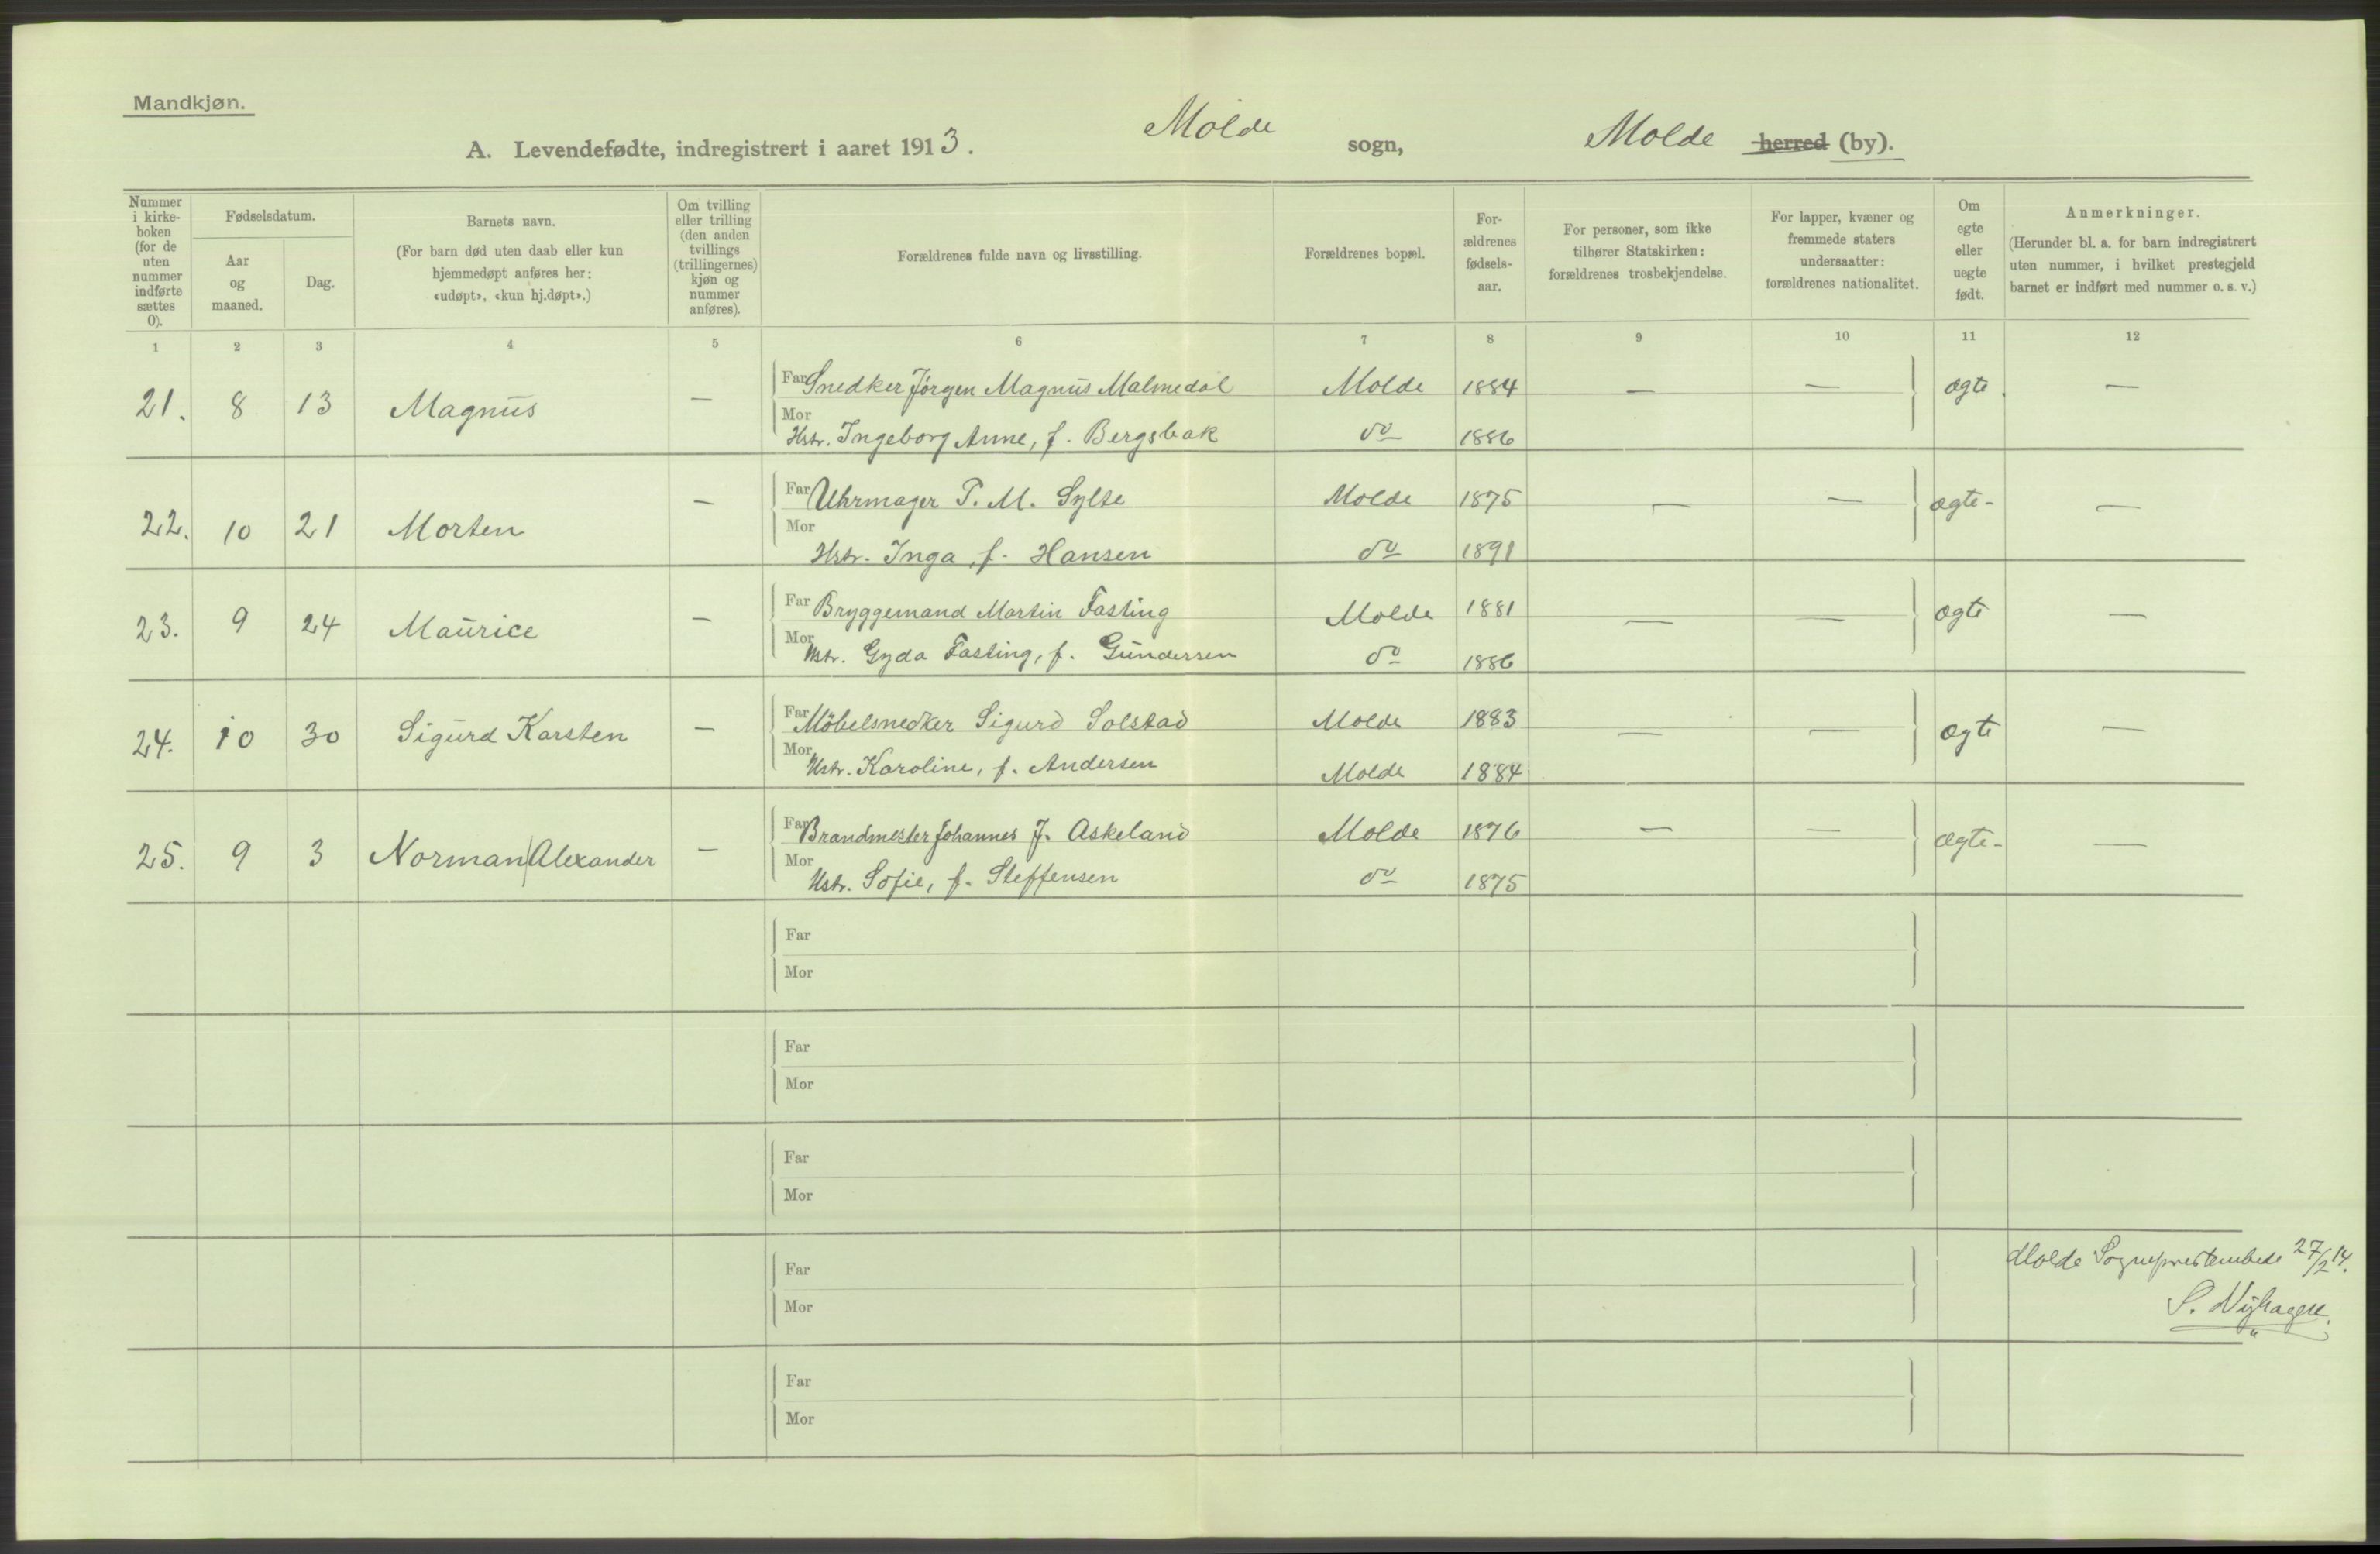 Mandkjøn.
A. Levendefødte, indregistrert i aaret 1913. Molde sogn, Molde herred (by).
Nummer i kirke-boken (for de uten nummer indførte sættes 0).
Fødselsdatum.
Aar og maaned.
Dag.
Barnets navn.
(For barn død uten daab eller kun hjemmedøpt anføres her: «udøpt», «kun hj.døpt».)
Om tvilling eller trilling (den anden tvillings (trillingernes) kjøn og nummer anføres).
Forældrenes fulde navn og livsstilling.
Forældrenes bopæl.
For-ældrenes fødsels-aar.
For personer, som ikke tilhører Statskirken: forældrenes trosbekjendelse.
For lapper, kvæner og fremmede staters undersaatter: forældrenes nationalitet.
Om egte eller uegte født.
Anmerkninger.
(Herunder bl. a. for barn indregistrert uten nummer, i hvilket prestegjeld barnet er indført med nummer o. s. v.)
1 2 3 4 5 6 7 8 9 10 11 12
21. 8 13 Magnus — Far Snedker Jørgen Magnus Malmedal Molde 1884 — — ægte. —
Mor Hstr. Ingeborg Anne, f. Bergsbak do 1886
22. 10 21 Morten — Far Uhrmager P. M. Sylte Molde 1875 — — ægte- —
Mor Hstr. Inga, f. Hansen do 1891
23. 9 24 Maurice — Far Bryggemand Martin Fasting Molde 1881 — — ægte —
Mor Hstr. Gyda Fasting, f. Gundersen do 1886
24. 10 30 Sigurd Karsten — Far Möbelsnedker Sigurd Solstad Molde 1883 — — ægte —
Mor Hstr. Karoline, f. Andersen Molde 1884
25. 9 3 Norman/Alexander — Far Brandmester Johannes J. Askeland Molde 1876 — — ægte- —
Mor Hstr. Sofie, f. Steffensen do 1875
Far
Mor
Far
Mor
Far
Mor
Far
Mor
Far
Mor
Molde Sogneprestembede 27/2 14.